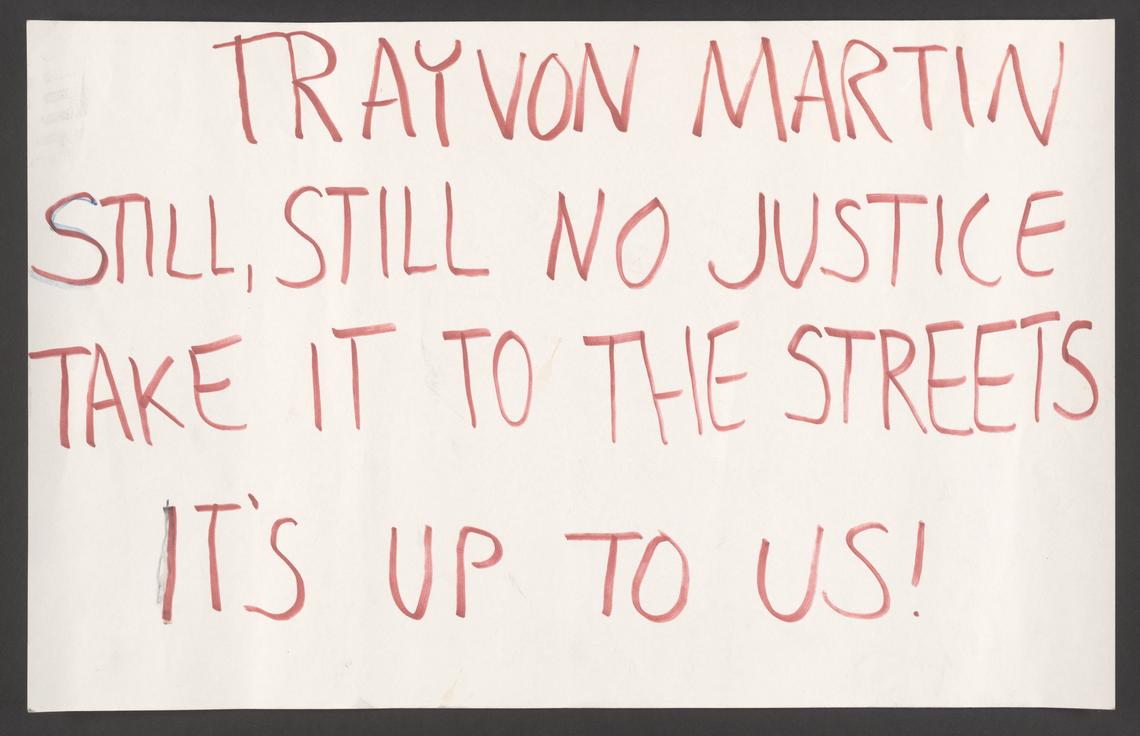 TRAYVON MARTIN
STILL, STILL NO JUSTICE
TAKE IT TO THE STREETS
IT'S UP TO US!